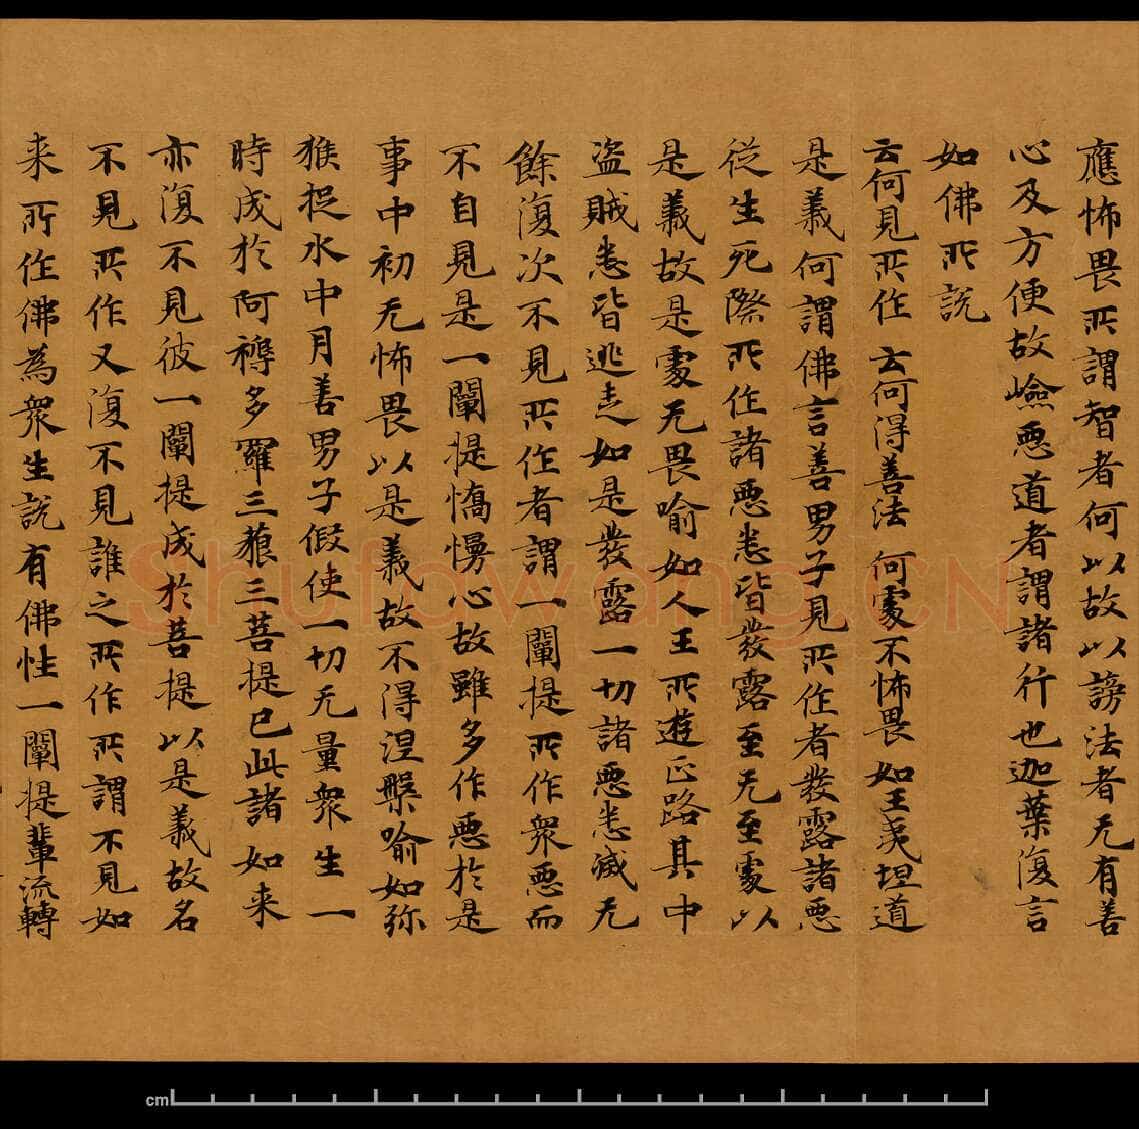 應怖畏所謂智者何以故以謗法者无有善
心及方便故嶮惡道者謂諸行也迦葉復言
如佛所說
云何見所作 云何得善法 何處不怖畏 如王夷坦道
是義何謂佛言善男子見所作者發露諸惡
從生死際所作諸惡悉皆發露至无至處以
是義故是處无畏喻如人王所遊正路其中
盜賊悉皆逃走如是發露一切諸惡悉滅无
餘復次不見所作者謂一闡提所作衆惡而
不自見是一闡提憍慢心故雖多作惡於是
事中初无怖畏以是義故不得涅槃喻如弥
猴捉水中月善男子假使一切无量衆生一
時成於阿耨多羅三藐三菩提已此諸如来
亦復不見彼一闡提成於菩提以是義故名
不見所作又復不見誰之所作所謂不見如
来所作佛為衆生説有佛性一闡提輩流轉
Shufawang.CN
cm